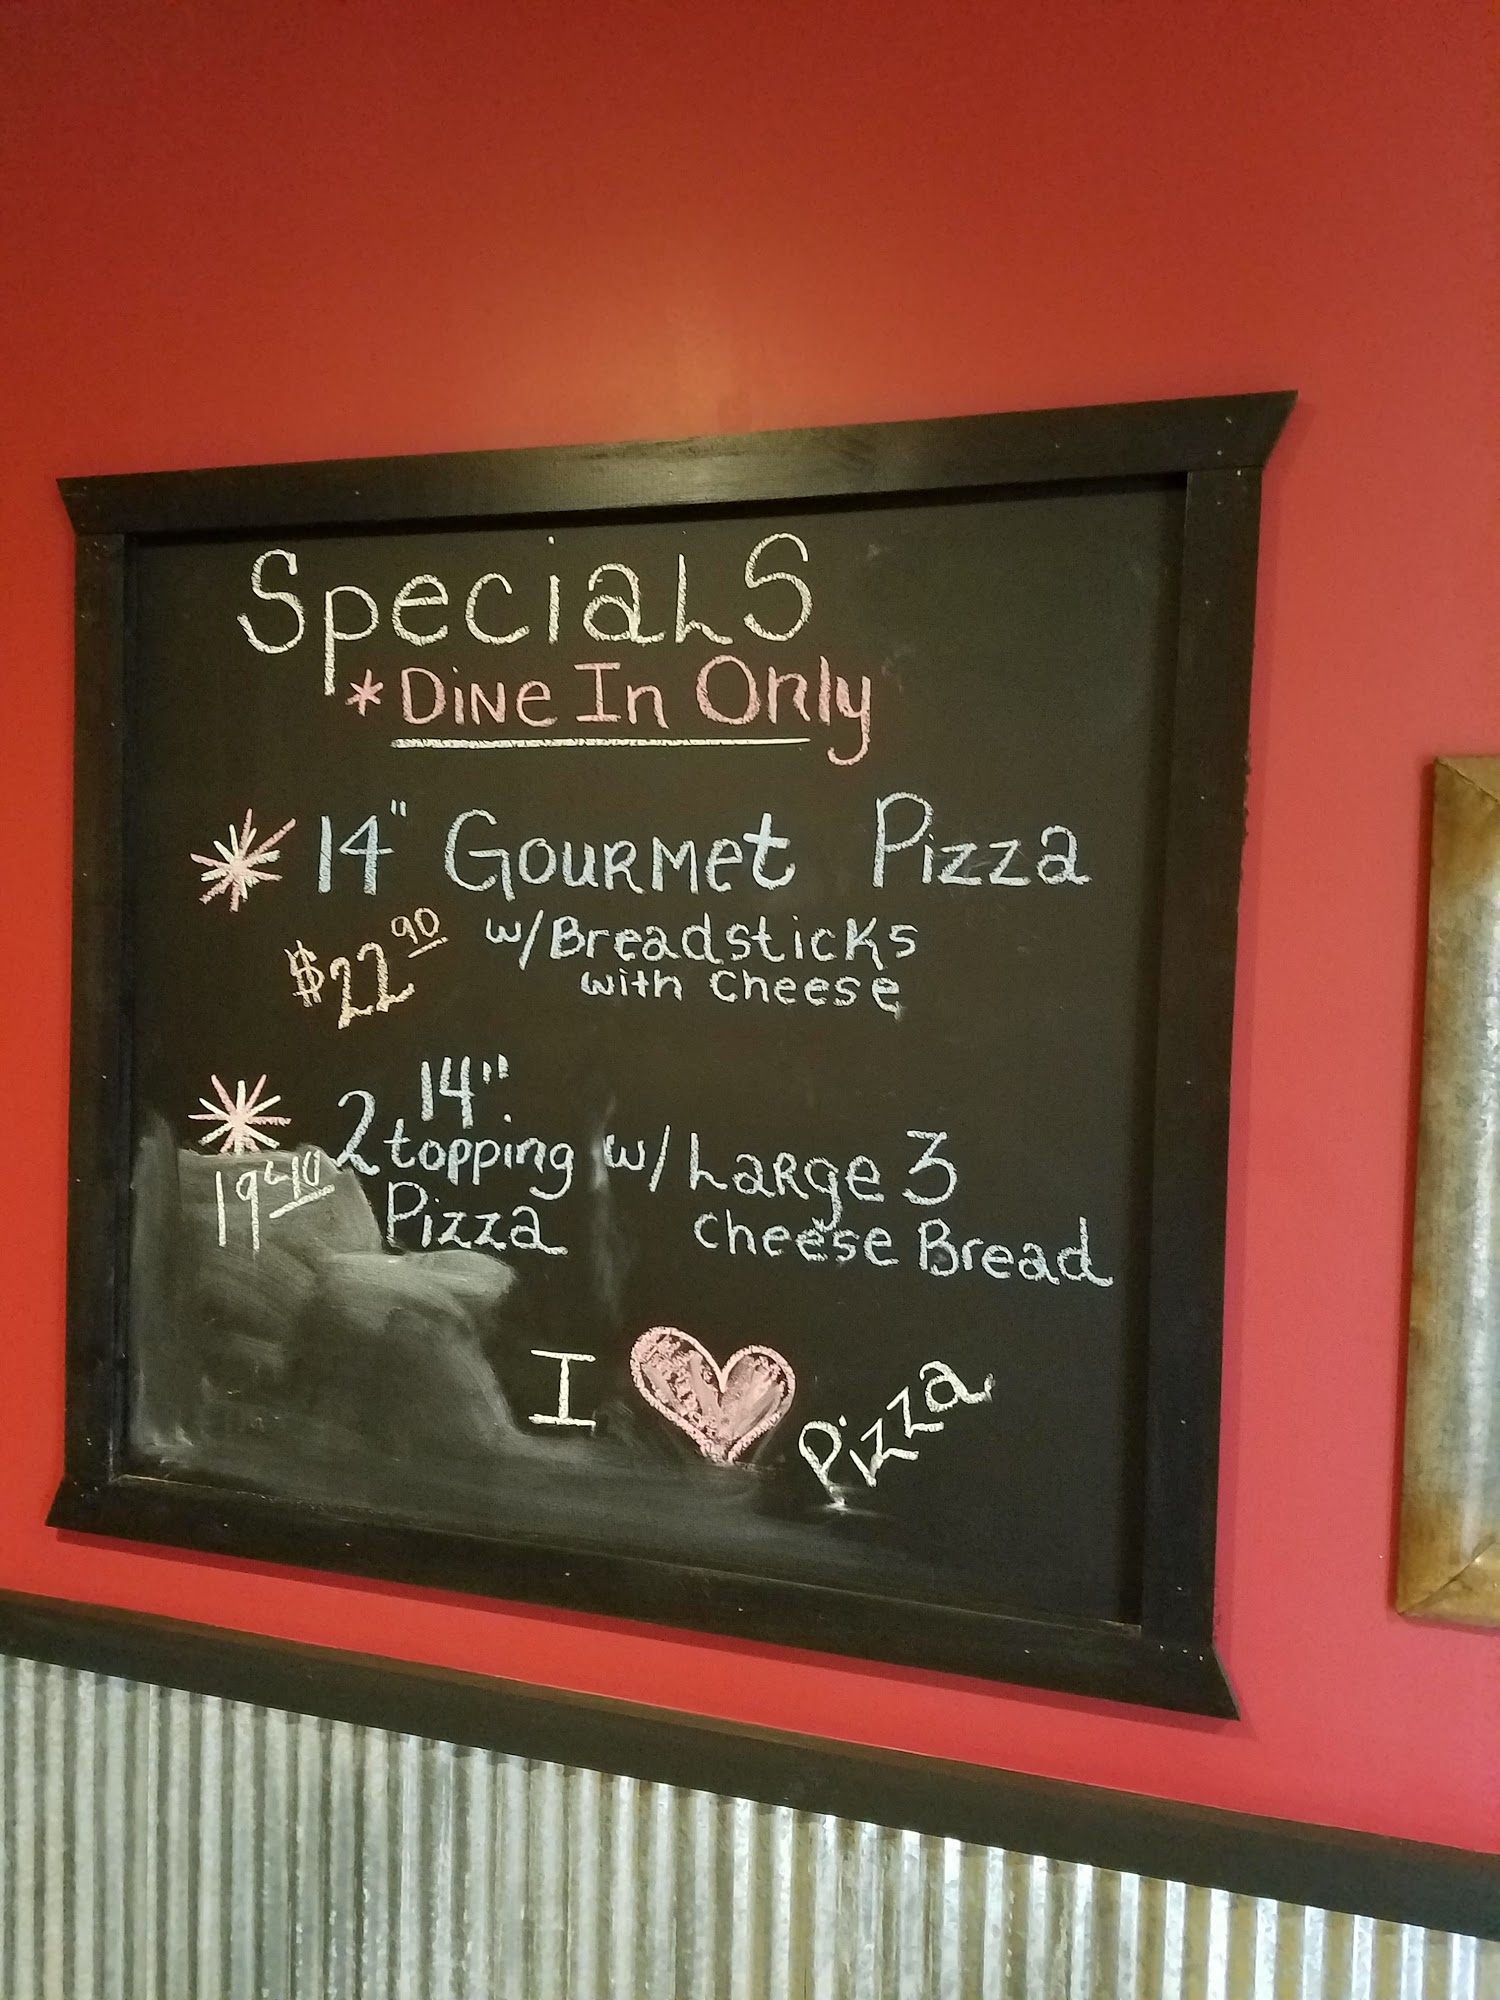 SpeciaLS
*Dine In Only
14" Gourmet Pizza
$22.90 w/Breadsticks
with cheese
14"
2 topping w/ Large 3
Pizza cheese Bread
I ♥ Pizza